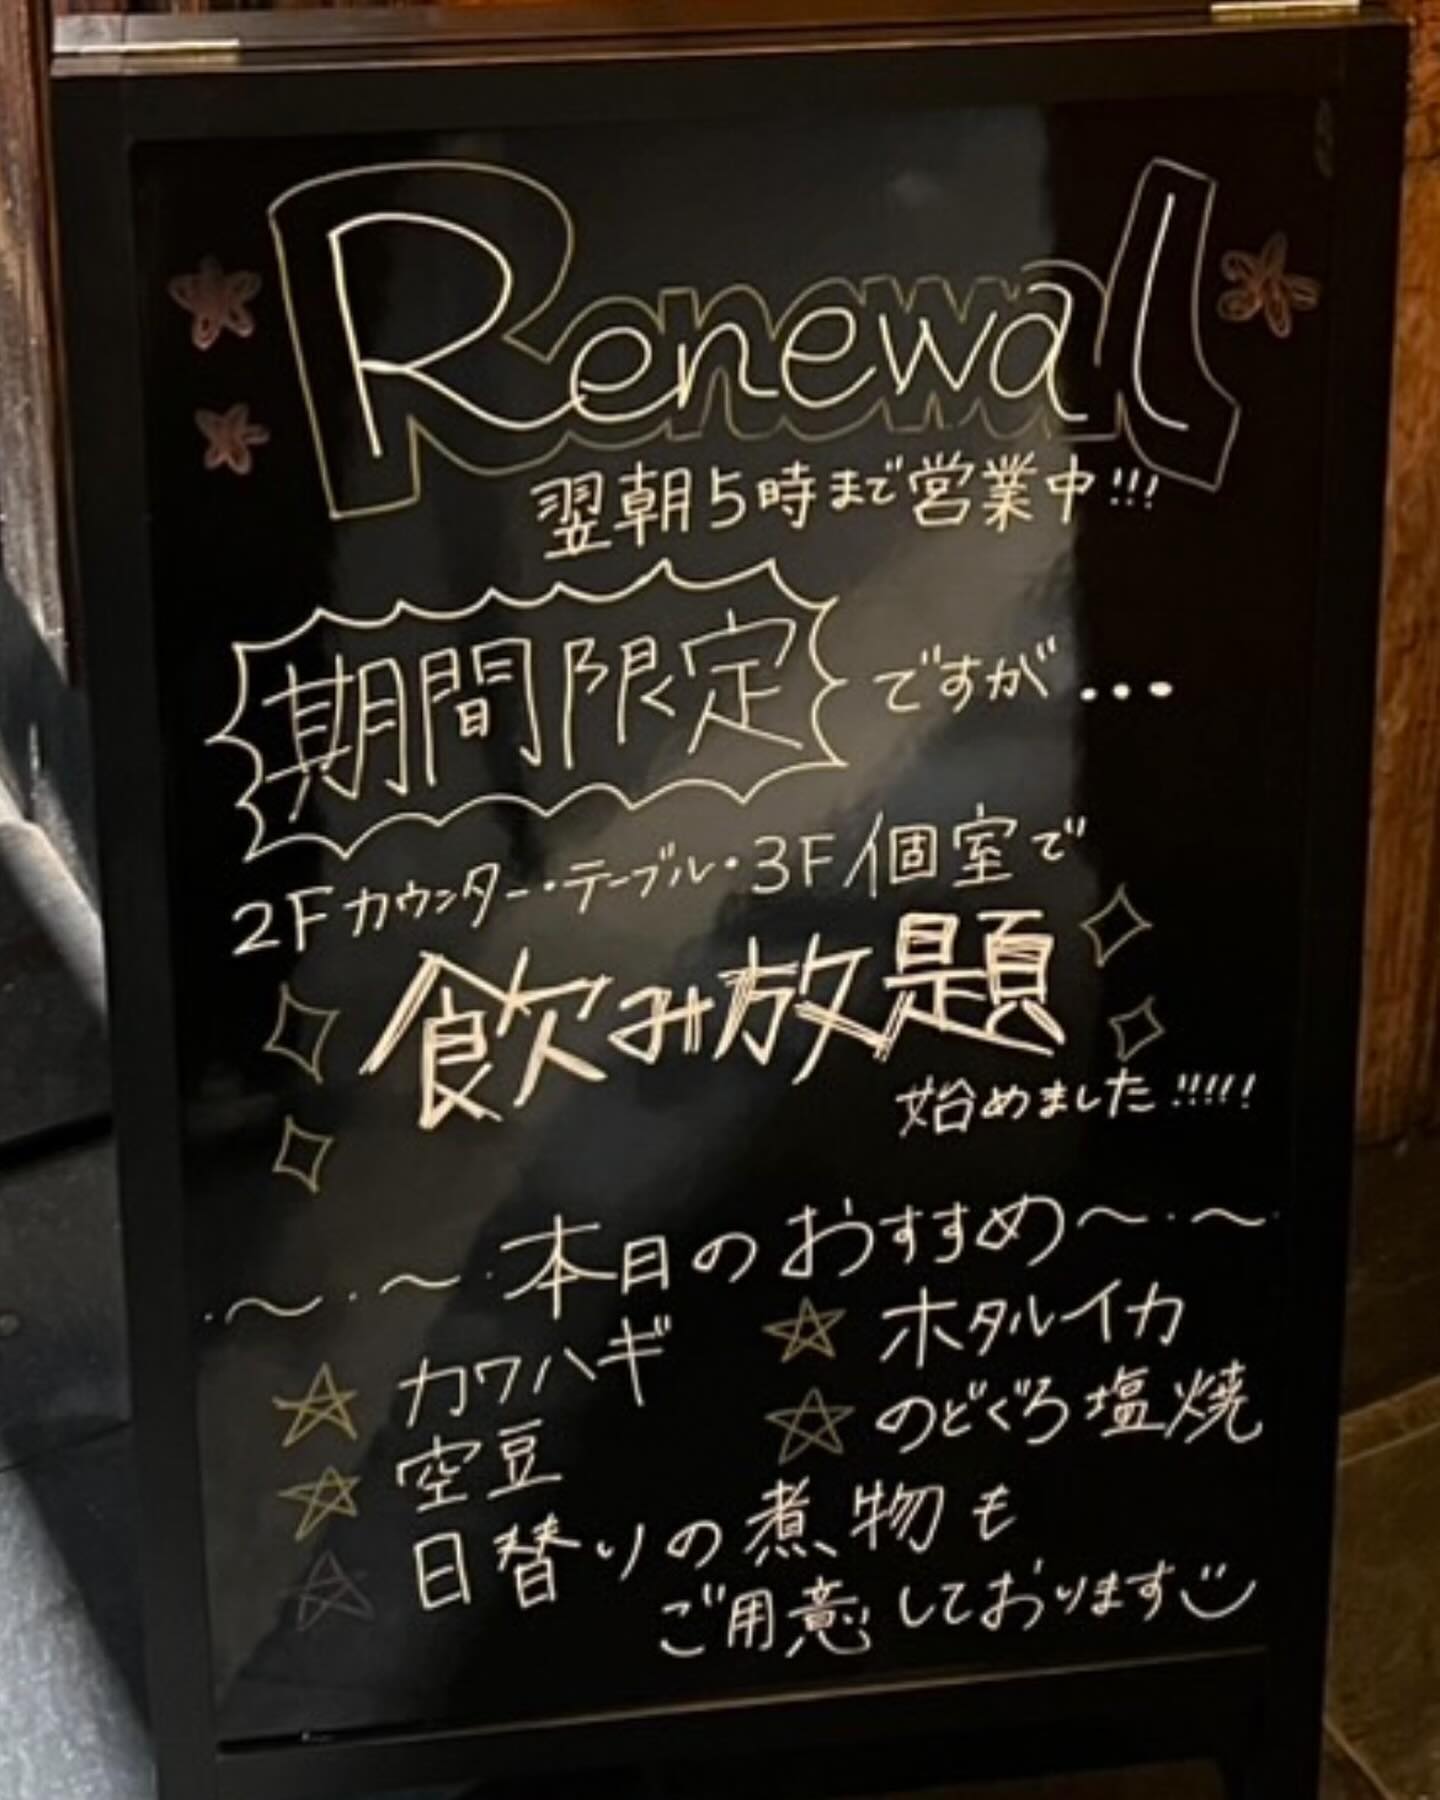 Renewal
翌朝5時まで営業中!!!
期間限定ですが...
2Fカウンター・テーブル・3F個室で
飲み放題
始めました!!!!!
〜・〜・本日のおすすめ〜・〜
☆カワハギ ☆ホタルイカ
☆空豆 ☆のどぐろ塩焼
☆日替りの煮物も
ご用意しております